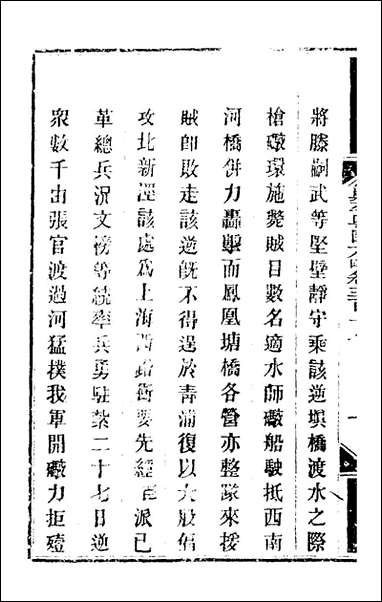 將滕嗣武等堅壁靜守乘該逆塡橋渡水之際
槍礮環施斃賊目數名適水師礮船駛抵西南
河橋併力轟擊而鳳凰塘橋各營亦整隊來援
賊卽敗走該逆旣不得逞於靑浦復以大股偪
攻北新涇該處爲上海西路衝要先經臣派已
革總兵況文榜等統率兵勇駐紮二十七日逆
衆數千由張官渡過河猛撲我軍開礮力拒殪